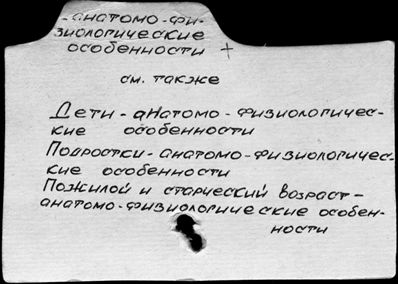 -анатомо-фи-
зиологические
особенности +
см. также
Дети-анатомо-физиологичес-
кие особенности
Подростки-анатомо-физиологичес-
кие особенности
Пожилой и старческий возраст-
анатомо-физиологические особен-
ности